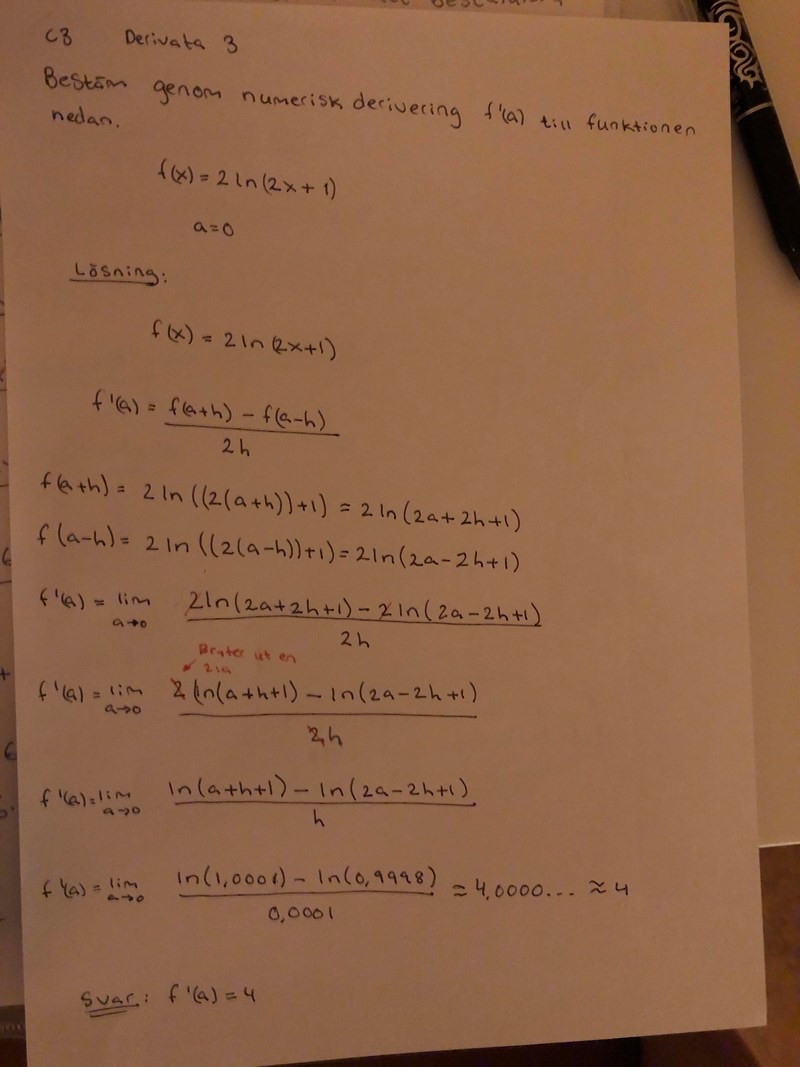 C3 Derivata 3
Bestäm genom numerisk derivering f'(a) till funktionen
nedan.
f(x) = 2 ln(2x + 1)
a=0
Lösning:
f(x) = 2 ln (2x+1)
f'(a) = f(a+h) - f(a-h)
2h
f(a+h) = 2 ln ((2(a+h))+1) = 2 ln (2a+2h+1)
f(a-h) = 2 ln ((2(a-h))+1) = 2ln(2a-2h+1)
f'(a) = lim 2ln(2a+2h+1) - 2ln(2a-2h+1)
a→0 2h
Bryter ut en
f'(a) = lim 2(ln(a+h+1) - ln(2a-2h+1)
a→0 2h
f'(a) = lim ln(a+h+1) - ln(2a-2h+1)
a→0 h
f'(a) = lim ln(1,0001) - ln(0,9998) = 4,0000... ≈ 4
a→0 0,0001
Svar: f'(a) = 4